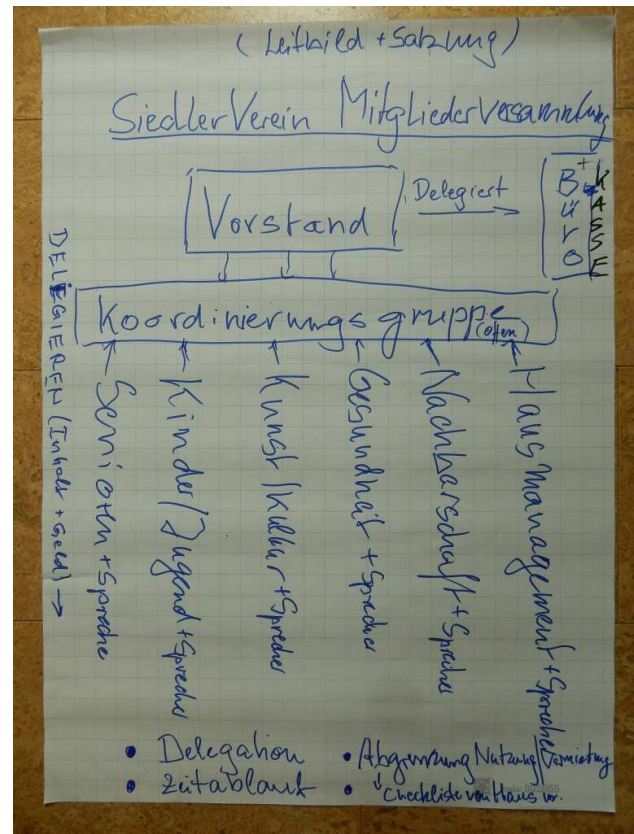 (Leitbild + Satzung)
SiedlerVerein MitgliederVersammlung
Vorstand
Delegiert
Büro
+
KASSE
Koordinierungsgruppe
(offen)
DELEGIEREN (Inhalt + Geld) →
Senioren + Sprecher
Kinder/Jugend + Sprecher
Kunst/Kultur + Sprecher
Gesundheit + Sprecher
Nachbarschaft + Sprecher
Hausmanagement + Sprecher
• Delegation
• Zeitablauf
• Abgrenzung Nutzung/Vermietung
• Checkliste von Haus